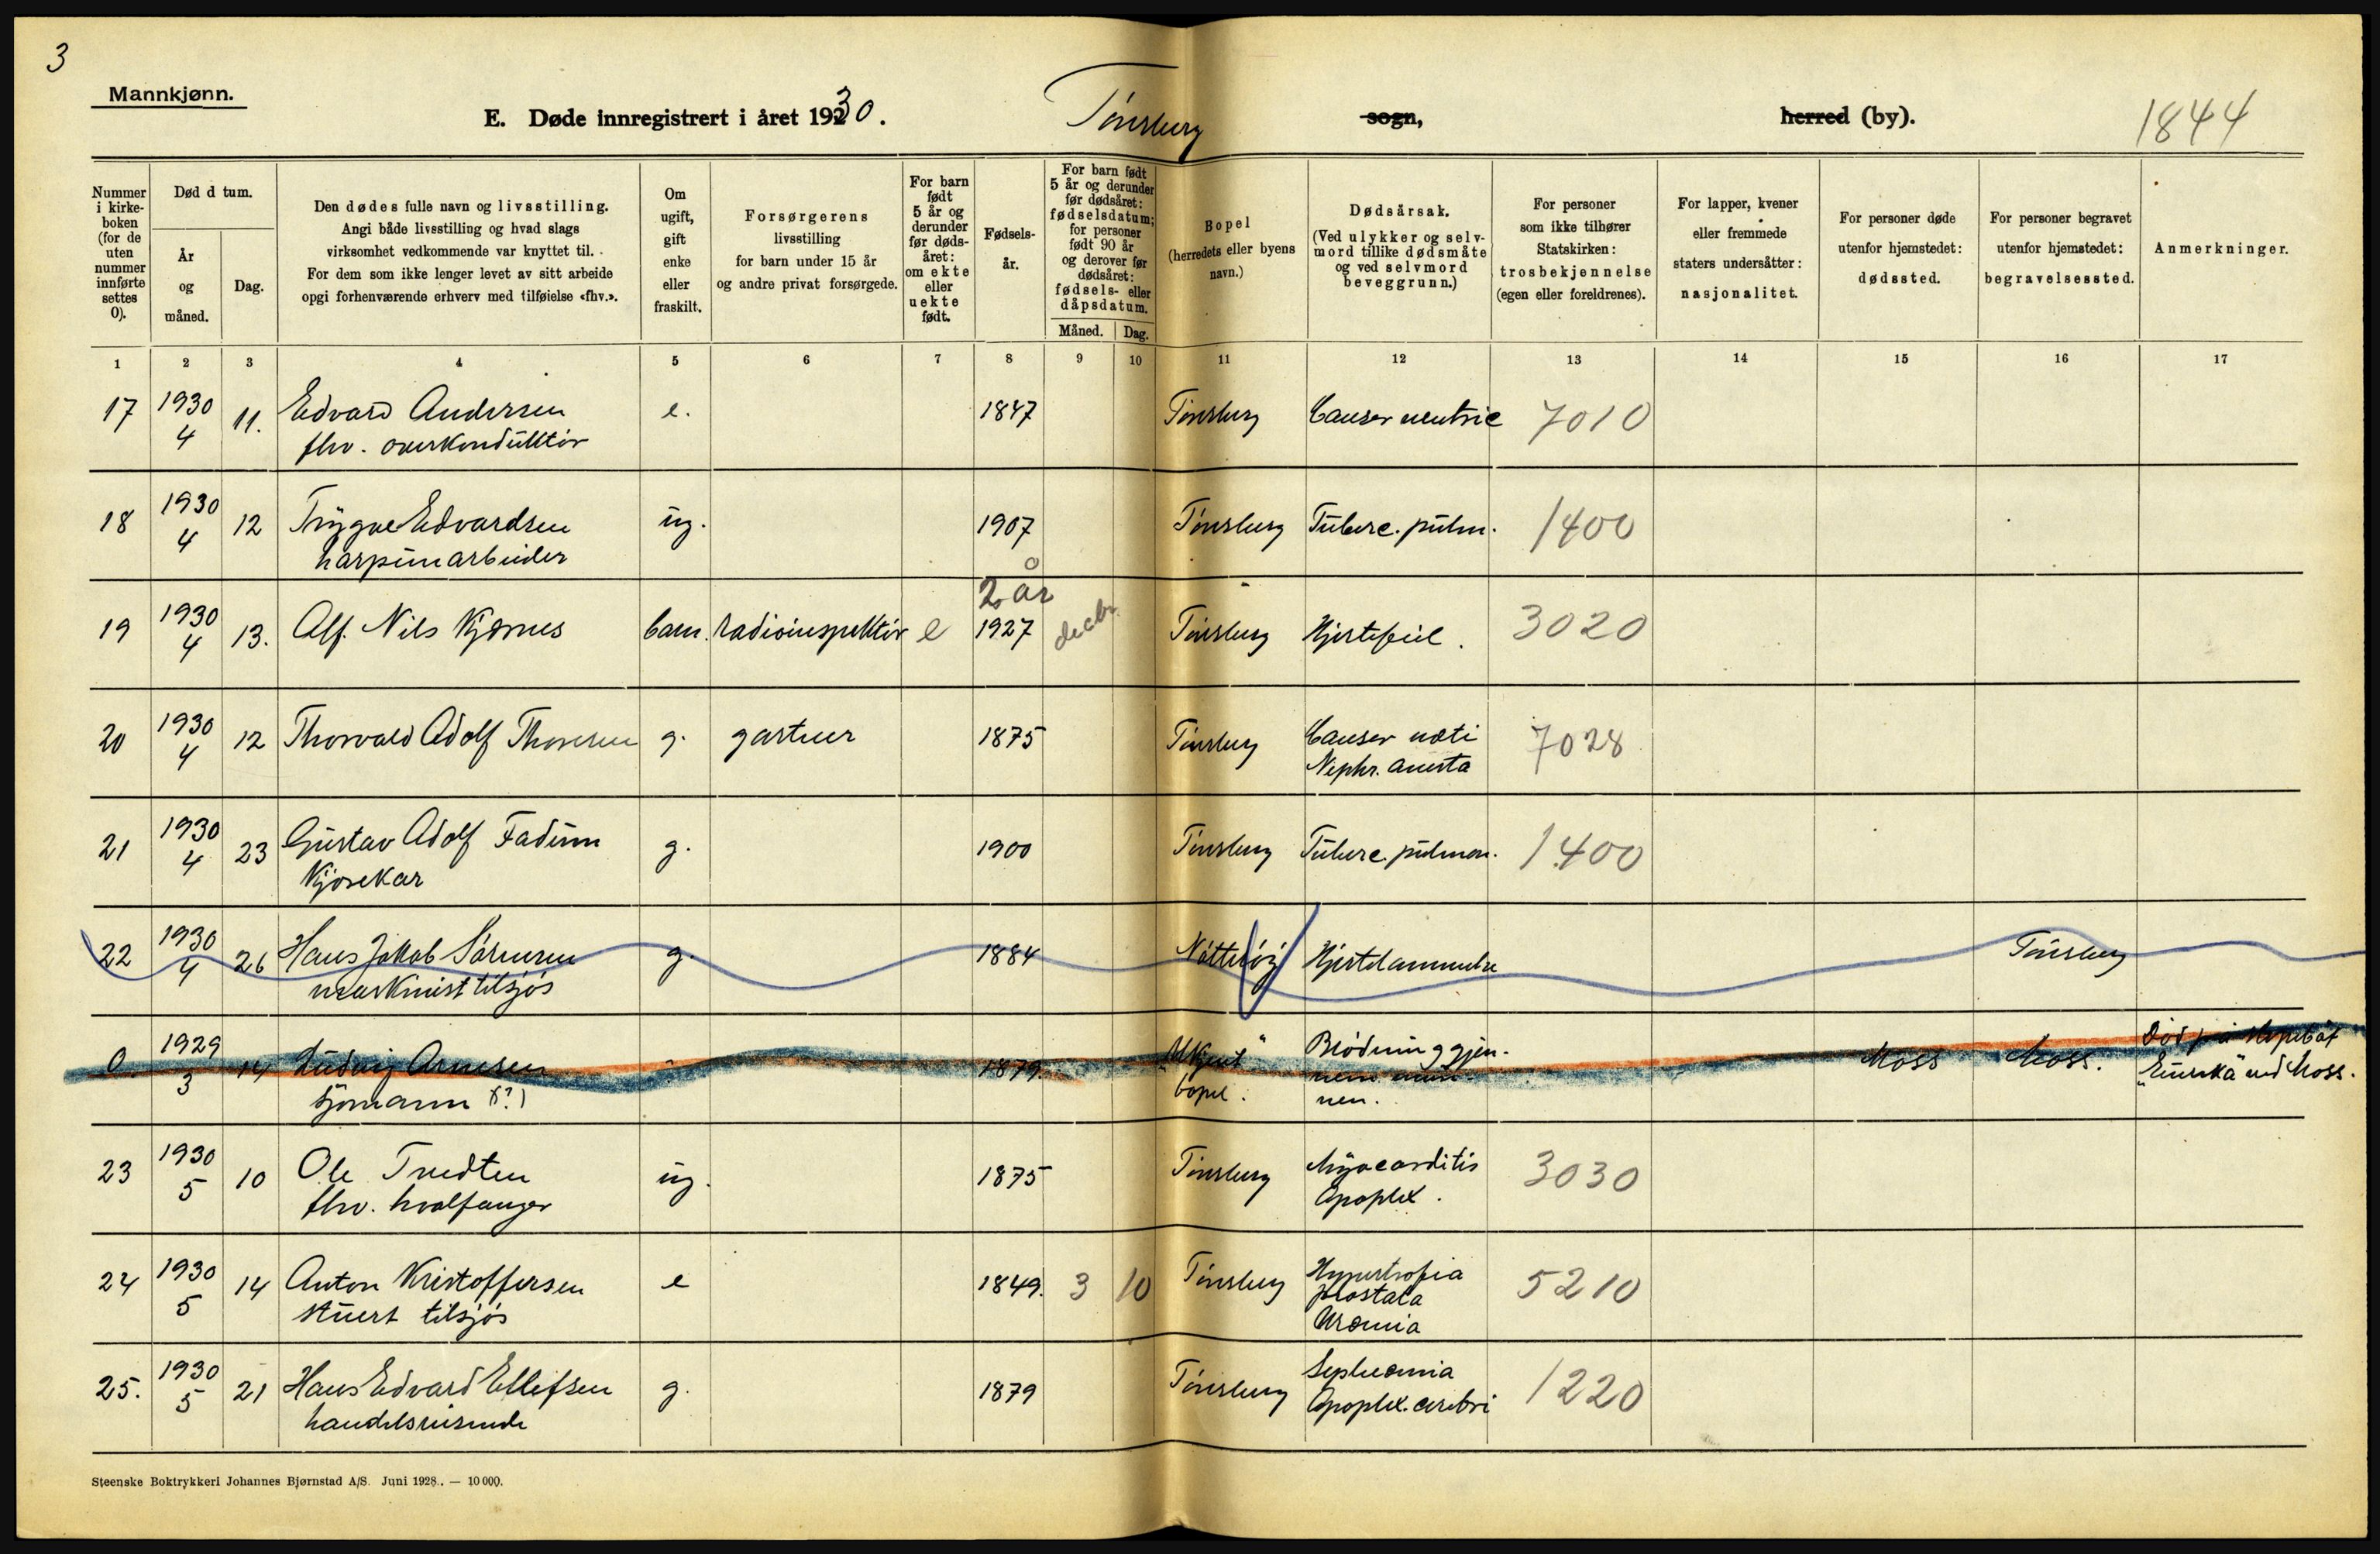 3
Mannkjønn.
E. Døde innregistrert i året 1930.
Tønsberg
sogn,
herred (by).
1844
Nummer i kirke- boken (for de uten nummer innførte settes 0).
Død d tum.
År og måned.
Dag.
Den dødes fulle navn og livsstilling.
Angi både livsstilling og hvad slags
virksomhet vedkommende var knyttet til.
For dem som ikke lenger levet av sitt arbeide
opgi forhenværende erhverv med tilføielse «fhv.».
Om ugift, gift enke eller fraskilt.
Forsørgerens
livsstilling
for barn under 15 år
og andre privat forsørgede.
For barn født 5 år og derunder før døds- året: om ekte eller uekte født.
Fødsels- år.
For barn født 5 år og derunder før dødsåret: fødselsdatum; for personer født 90 år og derover før dødsåret: fødsels- eller dåpsdatum.
Måned. Dag.
Bopel
(herredets eller byens navn.)
Dødsårsak.
(Ved ulykker og selv- mord tillike dødsmåte og ved selvmord beveggrunn.)
For personer som ikke tilhører Statskirken: trosbekjennelse (egen eller foreldrenes).
For lapper, kvener eller fremmede staters undersåtter: nasjonalitet.
For personer døde utenfor hjemstedet: dødssted.
For personer begravet utenfor hjemstedet: begravelsessted.
Anmerkninger.
1 2 3 4 5 6 7 8 9 10 11 12 13 14 15 16 17
17 1930 4 11. Edvard Andersen e. 1847 Tønsberg Cancer ventric 7010
fhv. overkonduktør
18 1930 4 12 Trygve Edvardsen ug. 1907 Tønsberg Tuberc. pulm. 1400
harpunarbeider
2 år
19 1930 4 13. Alf. Nils Kjærnes barn. radioinspektør e 1927 decbr. Tønsberg Hjertefeil. 3020
20 1930 4 12 Thorvald Adolf Thoresen g. gartner 1875 Tønsberg Cancer recti 7028
Nephr.
21 1930 4 23 Gustav Adolf Fadum g. 1900 Tønsberg Tuberc. pulmon. 1400
Kjørekar
22 1930 4 26 Hans Jakob Sørensen g. 1884 Nøtterøy Hjertelammelse Tønsberg
maskinist tilsjøs
0. 1929 3 14 Ludvig Arnesen 1879. "Ukjent" Blødning gjen- Moss Moss. Død på slepebåt
sjømann (?) bopel. nem munnen. "Eureka" ved Moss.
23 1930 5 10 Ole Tredten ug. 1875 Tønsberg Myocarditis 3030
fhv. hvalfanger Apoplex.
24 1930 5 14 Anton Kristoffersen e 1849. 3 10 Tønsberg Hypertrofia 5210
stuert tilsjøs prostata
Uræmia
25. 1930 5 21 Hans Edvard Ellefsen g. 1879 Tønsberg Septicæmia 1220
handelsreisende Apoplex. cerebri
Steenske Boktrykkeri Johannes Bjørnstad A/S. Juni 1928. — 10 000.